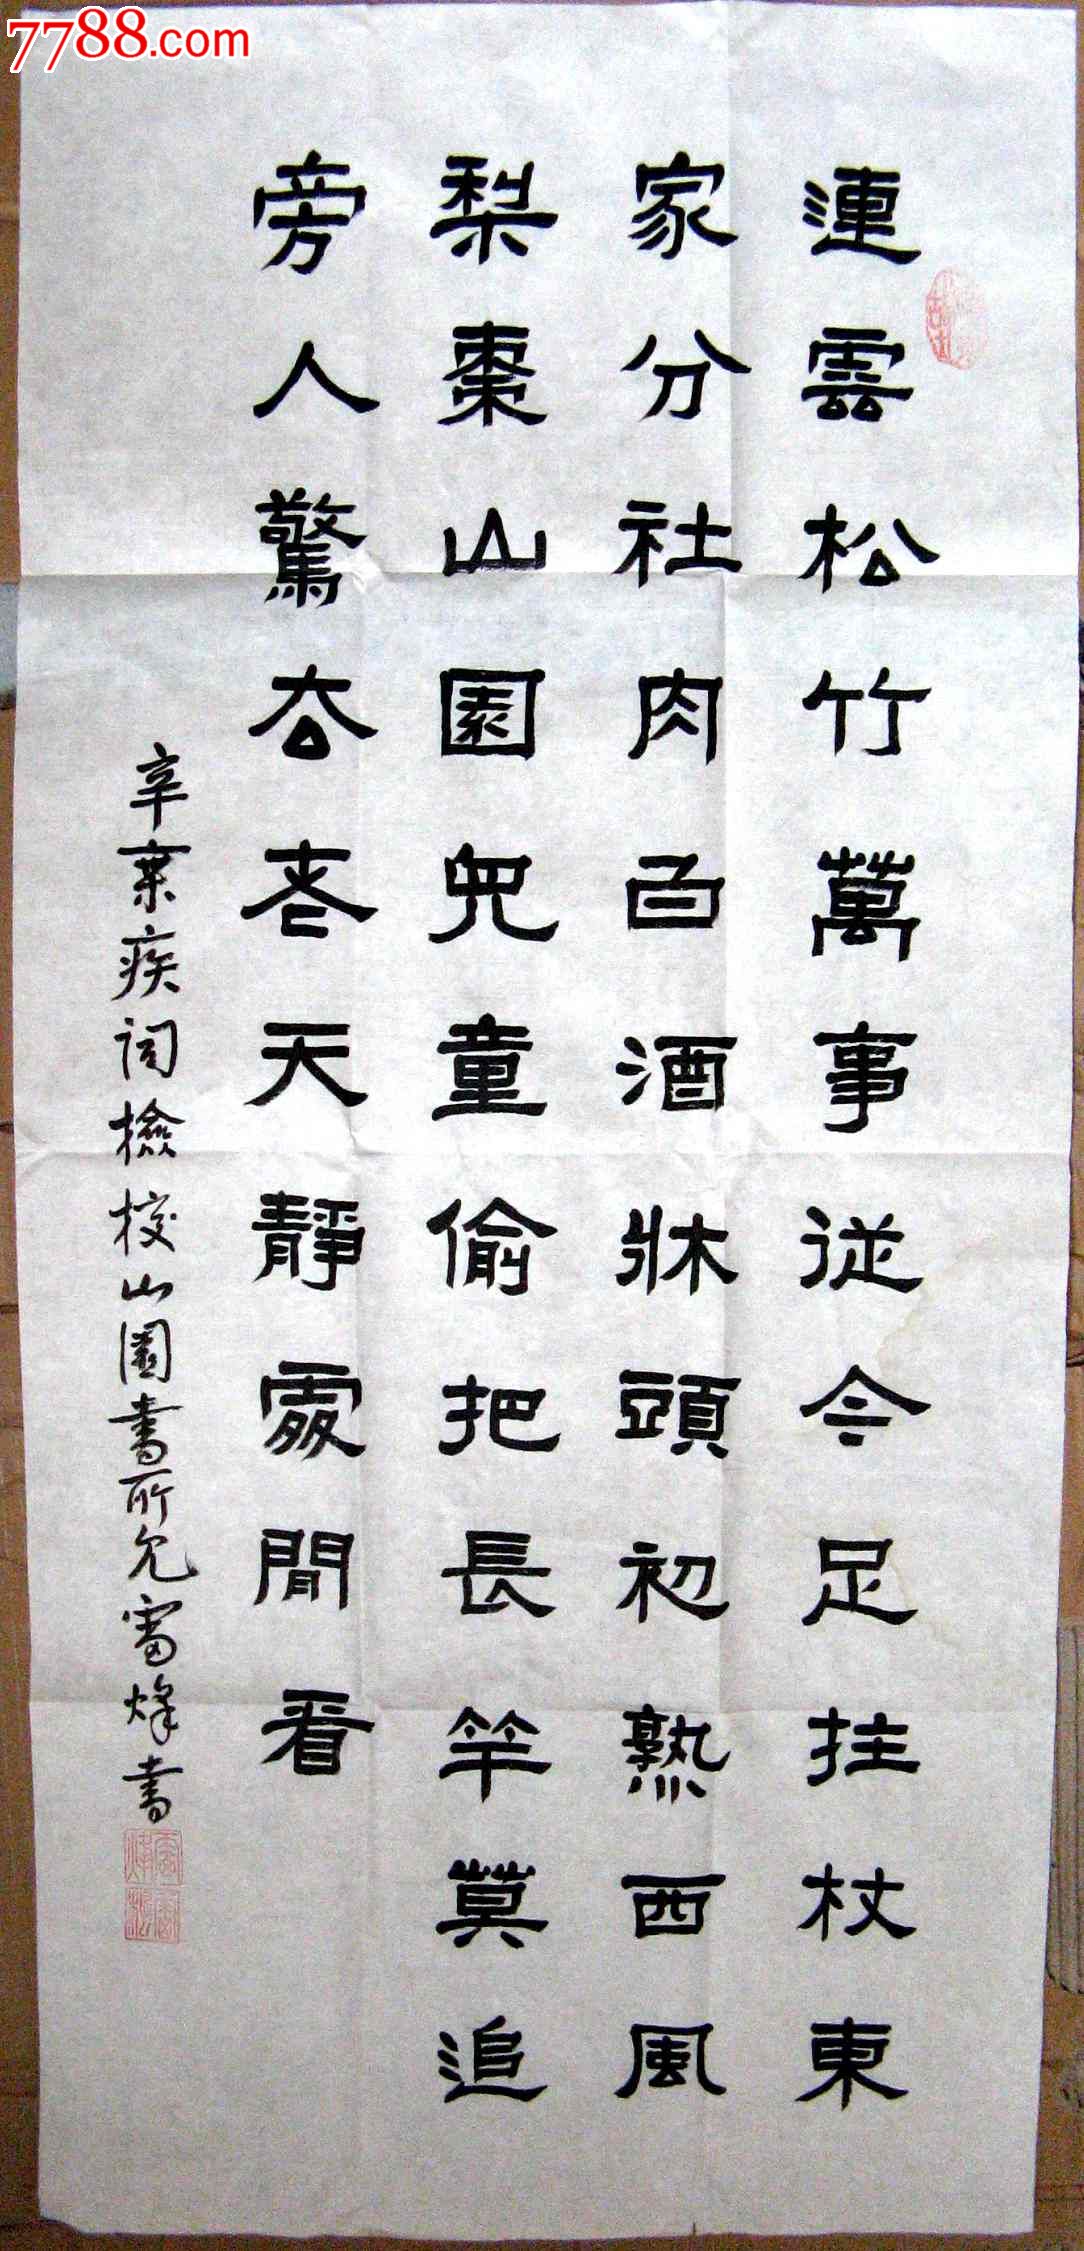 7788.com
連雲松竹萬事從今足拄杖東
家分社肉白酒牀頭初熟西風
梨棗山園兒童偷把長竿莫追
旁人驚去老天靜處閒看
辛棄疾詞檢校山園書所見雷烽書